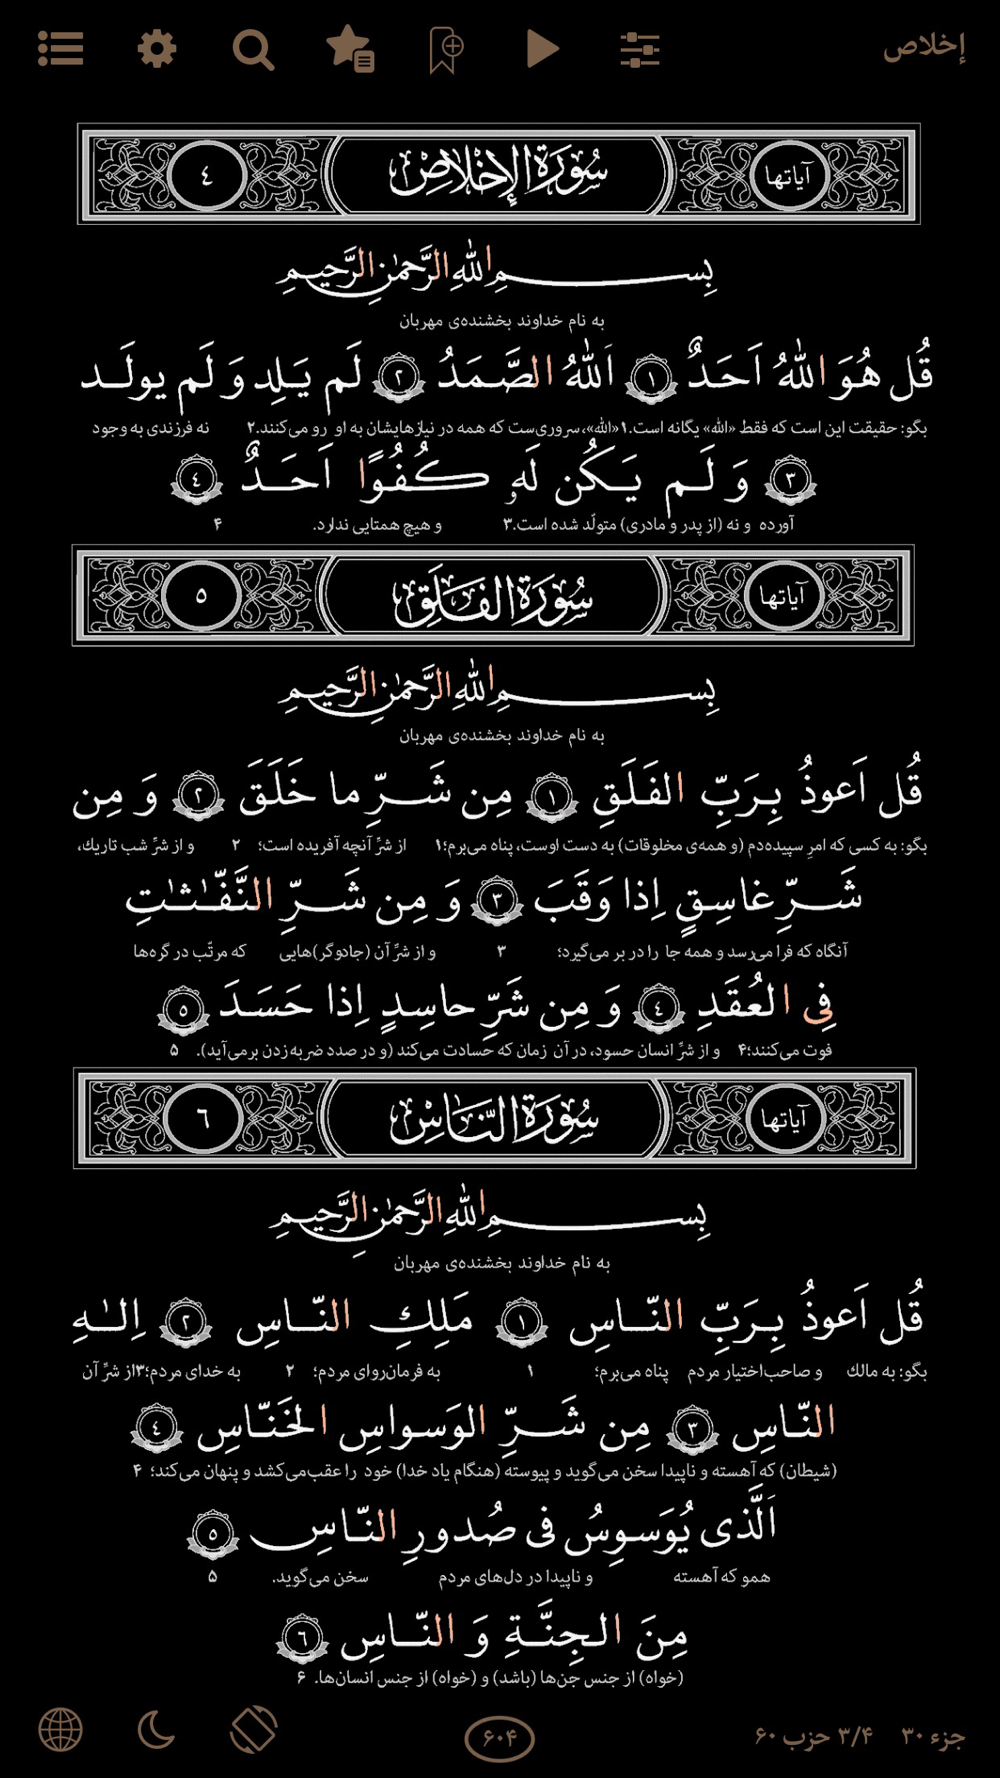 إخلاص
آیاتها سُورَةُ الإِخْلَاصِ ٤
بِسـمِ اللّٰهِ الرَّحمٰنِ الرَّحيمِ
به نام خداوند بخشنده‌ی مهربان
قُل هُوَ اللّٰهُ اَحَدٌ ١ اَللّٰهُ الصَّمَدُ ٢ لَم يَلِد وَ لَم يولَد
بگو: حقیقت این است که فقط «الله» یگانه است.۱ «الله»، سروری‌ست که همه در نیازهایشان به او رو می‌کنند.۲ نه فرزندی به وجود
٣ وَ لَم يَكُن لَهٗ كُفُوًا اَحَدٌ ٤
آورده و نه (از پدر و مادری) متولّد شده است.۳ و هیچ همتایی ندارد. ۴
آیاتها سُورَةُ الفَلَقِ ٥
بِسـمِ اللّٰهِ الرَّحمٰنِ الرَّحيمِ
به نام خداوند بخشنده‌ی مهربان
قُل اَعوذُ بِرَبِّ الفَلَقِ ١ مِن شَرِّ ما خَلَقَ ٢ وَ مِن
بگو: به کسی که امرِ سپیده‌دم (و همه‌ی مخلوقات) به دست اوست، پناه می‌برم؛۱ از شرِّ آنچه آفریده است؛ ۲ و از شرِّ شب تاریک،
شَرِّ غاسِقٍ اِذا وَقَبَ ٣ وَ مِن شَرِّ النَّفّٰثٰتِ
آنگاه که فرا می‌رسد و همه جا را در بر می‌گیرد؛ ۳ و از شرِّ آن (جادوگر)هایی که مرتّب در گره‌ها
فِی العُقَدِ ٤ وَ مِن شَرِّ حاسِدٍ اِذا حَسَدَ ٥
فوت می‌کنند؛۴ و از شرِّ انسان حسود، در آن زمان که حسادت می‌کند (و در صدد ضربه‌زدن برمی‌آید). ۵
آیاتها سُورَةُ النَّاسِ ٦
بِسـمِ اللّٰهِ الرَّحمٰنِ الرَّحيمِ
به نام خداوند بخشنده‌ی مهربان
قُل اَعوذُ بِرَبِّ النّاسِ ١ مَلِكِ النّاسِ ٢ اِلٰهِ
بگو: به مالک و صاحب‌اختیار مردم پناه می‌برم؛ ۱ به فرمان‌روای مردم؛ ۲ به خدای مردم؛۳ از شرِّ آن
النّاسِ ٣ مِن شَرِّ الوَسواسِ الخَنّاسِ ٤
(شیطان) که آهسته و ناپیدا سخن می‌گوید و پیوسته (هنگام یاد خدا) خود را عقب می‌کشد و پنهان می‌کند؛ ۴
اَلَّذی يُوَسوِسُ فی صُدورِ النّاسِ ٥
همو که آهسته و ناپیدا در دل‌های مردم سخن می‌گوید. ۵
مِنَ الجِنَّةِ وَ النّاسِ ٦
(خواه) از جنس جن‌ها (باشد) و (خواه) از جنس انسان‌ها. ۶
جزء ۳۰ ۳/۴ حزب ۶۰ ۶۰۴